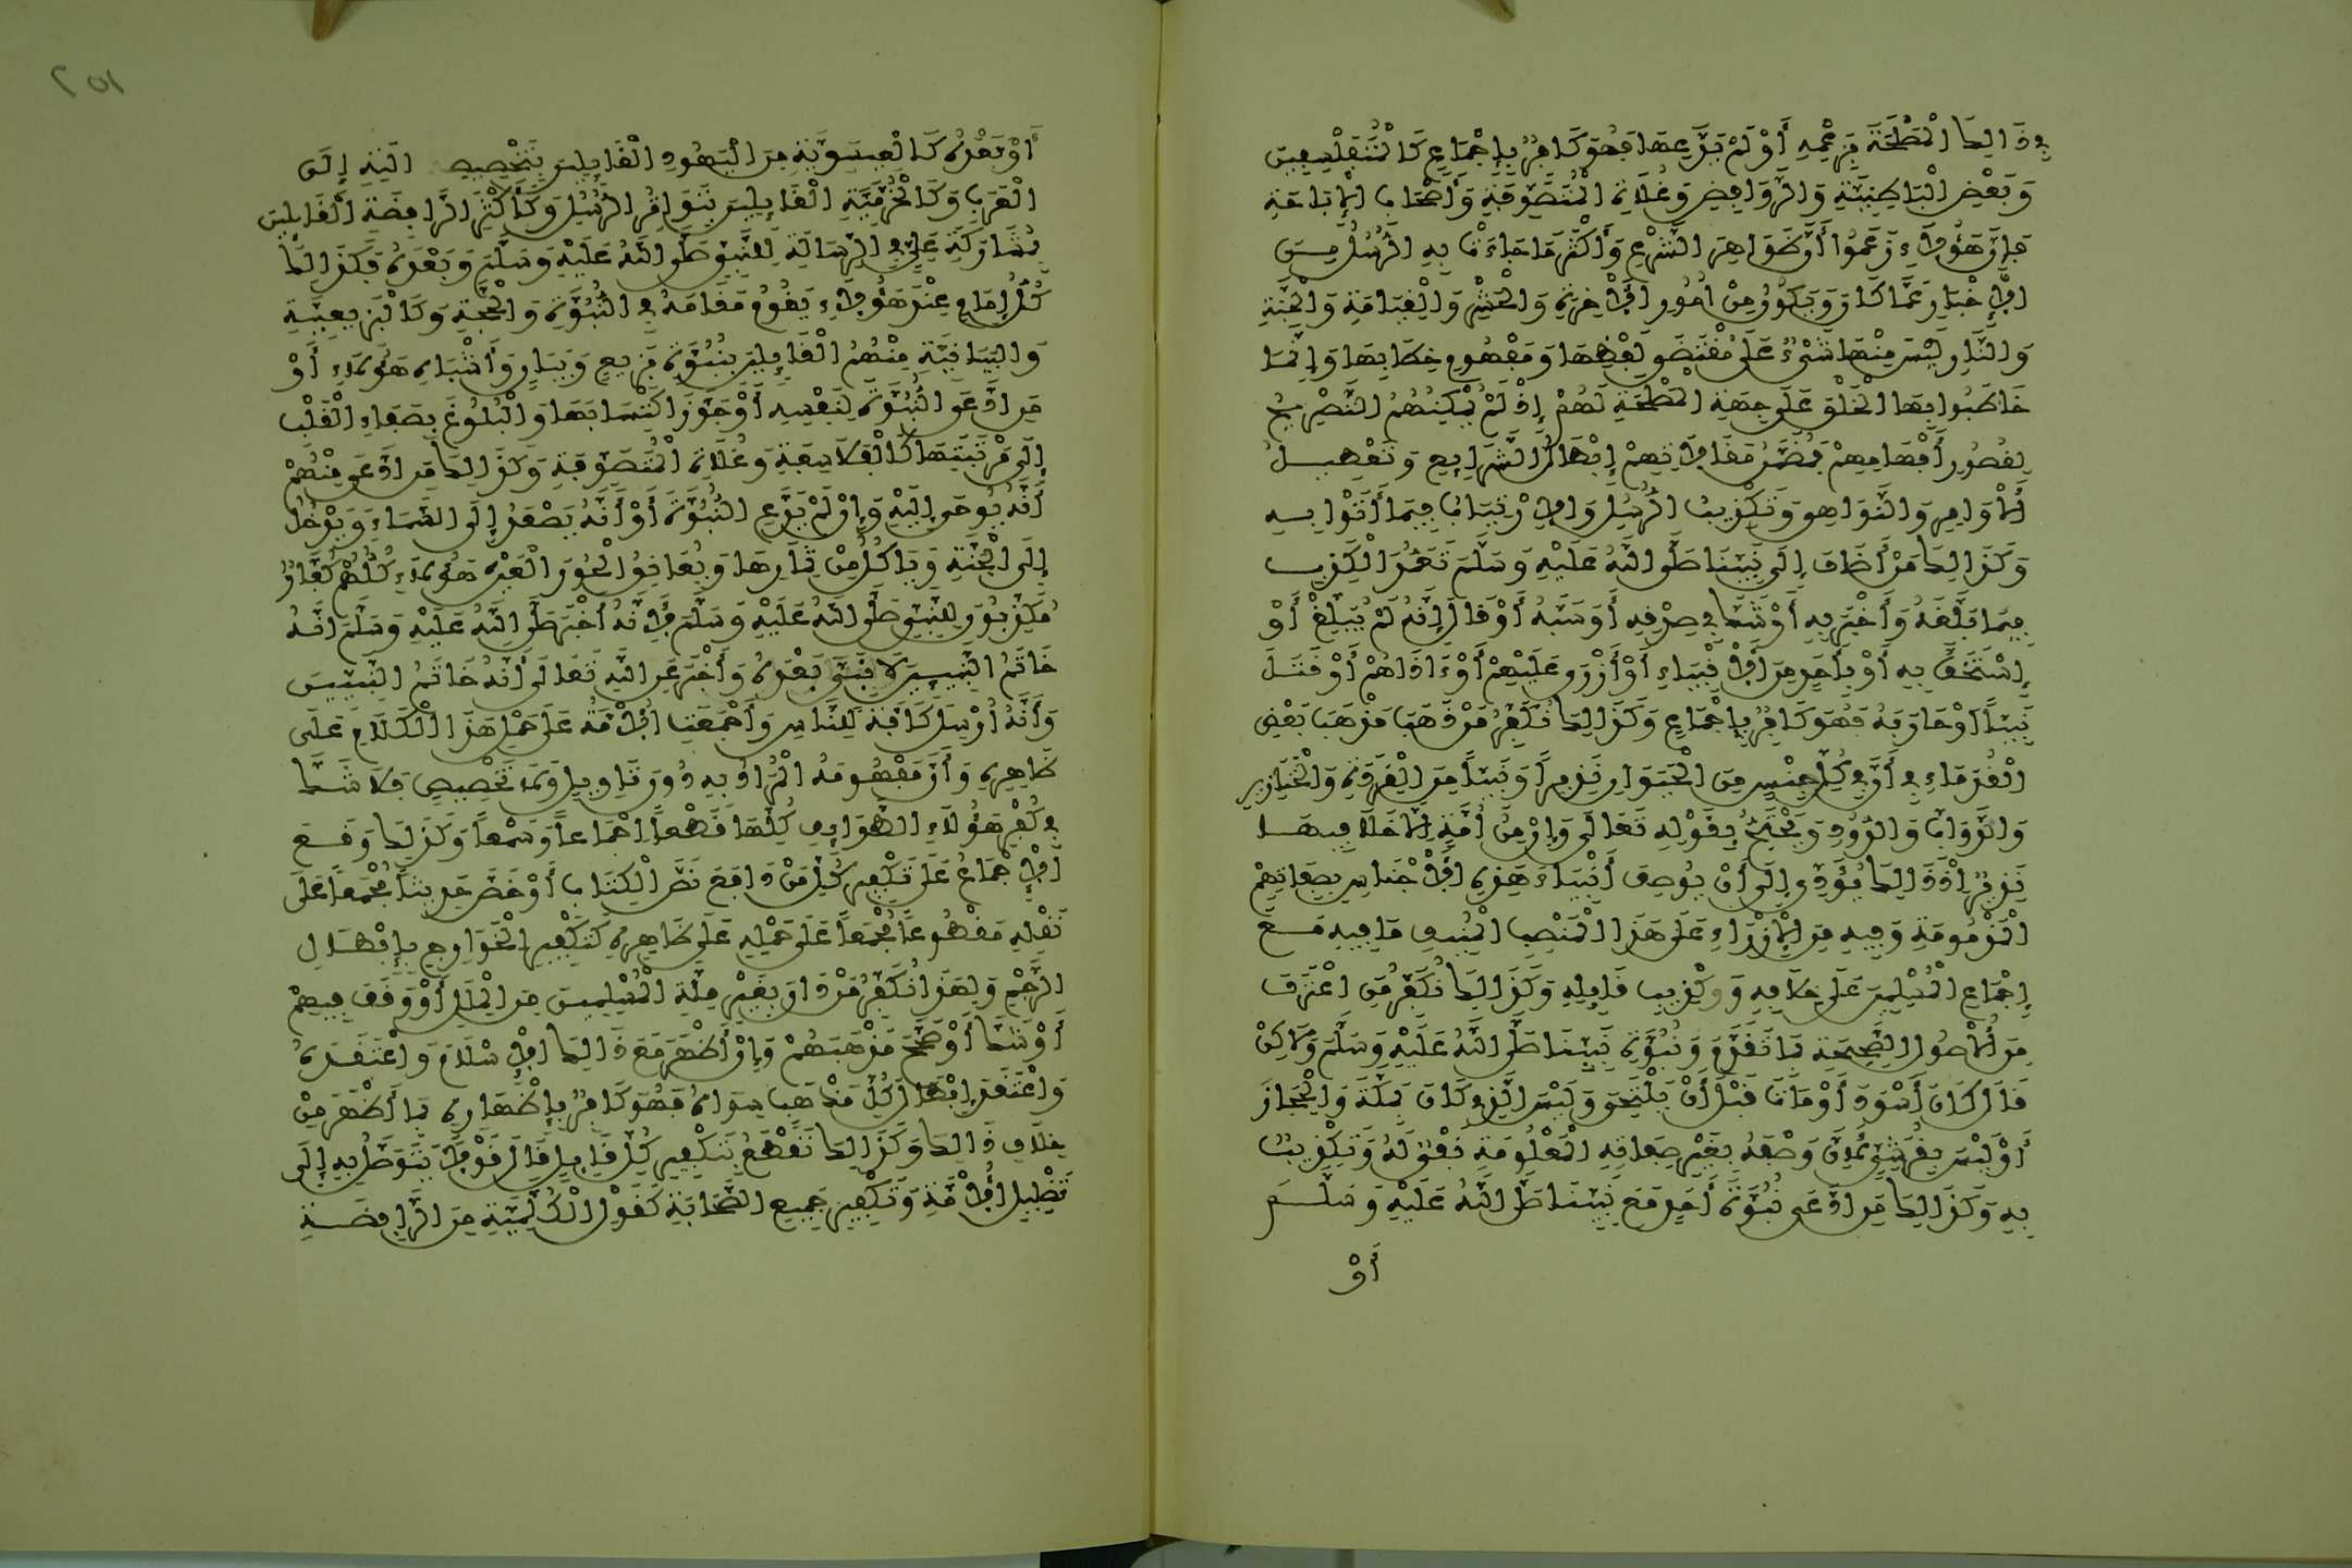 فِي ذَالِكَ الْمَصْلَحَةَ بِزَعْمِهِ أَوْ لَمْ يَدَّعِهَا فَهُوَ كَافِرٌ بِإِجْمَاعٍ كَالْمُتَفَلْسِفِينَ
وَبَعْضِ الْبَاطِنِيَّةِ وَالرَّوَافِضِ وَغُلَاةِ الْمُتَصَوِّفَةِ وَأَصْحَابِ الْإِبَاحَةِ
فَإِنَّ هَؤُلَاءِ زَعَمُوا أَنَّ ظَوَاهِرَ الشَّرْعِ وَأَكْثَرَ مَا جَاءَتْ بِهِ الرُّسُلُ مِنَ
الْإِخْبَارِ عَمَّا كَانَ وَيَكُونُ مِنْ أُمُورِ الْآخِرَةِ وَالْحَشْرِ وَالْقِيَامَةِ وَالْجَنَّةِ
وَالنَّارِ لَيْسَ مِنْهَا شَيْءٌ عَلَى مُقْتَضَى لَفْظِهَا وَمَفْهُومِ خِطَابِهَا وَإِنَّمَا
خَاطَبُوا بِهَا الْخَلْقَ عَلَى جِهَةِ الْمَصْلَحَةِ لَهُمْ إِذْ لَمْ يُمْكِنْهُمُ التَّصْرِيحُ
لِقُصُورِ أَفْهَامِهِمْ فَمُضَمَّنُ مَقَالَاتِهِمْ إِبْطَالُ الشَّرَايِعِ وَتَعْطِيلُ
الْأَوَامِرِ وَالنَّوَاهِي وَتَكْذِيبُ الرُّسُلِ وَالْاِرْتِيَابُ فِيمَا أَتَوْا بِهِ
وَكَذَالِكَ مَنْ أَضَافَ إِلَى نَبِيِّنَا صَلَّى اللَّهُ عَلَيْهِ وَسَلَّمَ تَعَمُّدَ الْكَذِبِ
فِيمَا بَلَّغَهُ وَأَخْبَرَ بِهِ أَوْ شَكَّ فِي صِدْقِهِ أَوْ سَبَّهُ أَوْ قَالَ إِنَّهُ لَمْ يُبَلِّغْ أَوْ
إِسْتَخَفَّ بِهِ أَوْ بِأَحَدٍ مِنَ الْأَنْبِيَاءِ أَوْ أَزْرَى عَلَيْهِمْ أَوْ ءَاذَاهُمْ أَوْ قَتَلَ
نَبِيّاً أَوْ حَارَبَهُ فَهُوَ كَافِرٌ بِإِجْمَاعٍ وَكَذَالِكَ نُكَفِّرُ مَنْ ذَهَبَ مَذْهَبَ بَعْضِ
الْقُدَمَاءِ فِي أَنَّ فِي كُلِّ جِنْسٍ مِنَ الْحَيَوَانِ نَذِيراً وَنَبِيّاً مِنَ الْقِرَدَةِ وَالْخَنَازِيرِ
وَالدَّوَابِّ وَالدُّودِ وَيَحْتَجُّ بِقَوْلِهِ تَعَالَى وَإِنْ مِنْ أُمَّةٍ إِلَّا خَلَا فِيهَا
نَذِيرٌ إِذْ ذَالِكَ يُؤَدِّي إِلَى أَنْ يُوصَفَ أَنْبِيَاءُ هَذِهِ الْأَجْنَاسِ بِصِفَاتِهِمُ
الْمَذْمُومَةِ وَفِيهِ مِنَ الْإِزْرَاءِ عَلَى هَذَا الْمَنْصِبِ الْمُنِيفِ مَا فِيهِ مَعَ
إِجْمَاعِ الْمُسْلِمِينَ عَلَى خِلَافِهِ وَتَكْذِيبِ قَايِلِهِ وَكَذَالِكَ نُكَفِّرُ مَنِ اعْتَرَفَ
مِنَ الْأُصُولِ الصَّحِيحَةِ بِمَا تَقَدَّمَ وَنُبُوَّةِ نَبِيِّنَا صَلَّى اللَّهُ عَلَيْهِ وَسَلَّمَ وَلَاكِنْ
قَالَ كَانَ أَسْوَدَ أَوْ مَاتَ قَبْلَ أَنْ يَلْتَحِيَ وَلَيْسَ الَّذِي كَانَ بِمَكَّةَ وَالْحِجَازِ
أَوْ لَيْسَ بِقُرَشِيٍّ لِأَنَّ وَصْفَهُ بِغَيْرِ صِفَاتِهِ الْمَعْلُومَةِ نَفْيٌ لَهُ وَتَكْذِيبٌ
بِهِ وَكَذَالِكَ مَنِ ادَّعَى نُبُوَّةَ أَحَدٍ مَعَ نَبِيِّنَا صَلَّى اللَّهُ عَلَيْهِ وَسَلَّمَ
أَوْ
٢٥١
أَوْ بَعْدَهُ كَالْعِيسَوِيَّةِ مِنَ الْيَهُودِ الْقَايِلِينَ بِتَخْصِيصِ إِلَى
الْعَرَبِ وَكَالْخُرَّمِيَّةِ الْقَايِلِينَ بِتَوَاتُرِ الرُّسُلِ وَكَأَكْثَرِ الرَّافِضَةِ الْقَايِلِينَ
بِمُشَارَكَةِ عَلِيٍّ فِي الرِّسَالَةِ لِلنَّبِيِّ صَلَّى اللَّهُ عَلَيْهِ وَسَلَّمَ وَبَعْدَهُ فَكَذَالِكَ
كُلُّ إِمَامٍ عِنْدَ هَؤُلَاءِ يَقُومُ مَقَامَهُ فِي النُّبُوَّةِ وَالْحُجَّةِ وَكَالْبَزِيعِيَّةِ
وَالْبَيَانِيَّةِ مِنْهُمُ الْقَايِلِينَ بِنُبُوَّةِ بَزِيعٍ وَبَيَانٍ وَأَشْبَاهِ هَؤُلَاءِ أَوْ
مَنِ ادَّعَى النُّبُوَّةَ لِنَفْسِهِ أَوْ جَوَّزَ اكْتِسَابَهَا وَالْبُلُوغَ بِصَفَاءِ الْقَلْبِ
إِلَى مَرْتَبَتِهَا كَالْفَلَاسِفَةِ وَغُلَاةِ الْمُتَصَوِّفَةِ وَكَذَالِكَ مَنِ ادَّعَى مِنْهُمْ
أَنَّهُ يُوحَى إِلَيْهِ وَإِنْ لَمْ يَدَّعِ النُّبُوَّةَ أَوْ أَنَّهُ يَصْعَدُ إِلَى السَّمَاءِ وَيَدْخُلُ
إِلَى الْجَنَّةِ وَيَاكُلُ مِنْ ثِمَارِهَا وَيُعَانِقُ الْحُورَ الْعِينَ هَؤُلَاءِ كُلُّهُمْ كُفَّارٌ
مُكَذِّبُونَ لِلنَّبِيِّ صَلَّى اللَّهُ عَلَيْهِ وَسَلَّمَ لِأَنَّهُ أَخْبَرَ صَلَّى اللَّهُ عَلَيْهِ وَسَلَّمَ أَنَّهُ
خَاتَمُ النَّبِيِّينَ لَا نَبِيَّ بَعْدَهُ وَأَخْبَرَ عَنِ اللَّهِ تَعَالَى أَنَّهُ خَاتَمُ النَّبِيِّينَ
وَأَنَّهُ أُرْسِلَ كَافَّةً لِلنَّاسِ وَأَجْمَعَتِ الْأُمَّةُ عَلَى حَمْلِ هَذَا الْكَلَامِ عَلَى
ظَاهِرِهِ وَأَنَّ مَفْهُومَهُ الْمُرَادُ بِهِ دُونَ تَاوِيلٍ وَلَا تَخْصِيصٍ فَلَا شَكَّ
فِي كُفْرِ هَؤُلَاءِ الطَّوَايِفِ كُلِّهَا قَطْعاً إِجْمَاعاً وَسَمْعاً وَكَذَالِكَ وَقَعَ
الْإِجْمَاعُ عَلَى تَكْفِيرِ كُلِّ مَنْ دَافَعَ نَصَّ الْكِتَابِ أَوْ خَصَّ حَدِيثاً مُجْمَعاً عَلَى
نَقْلِهِ مَقْطُوعاً مُجْمَعاً عَلَى حَمْلِهِ عَلَى ظَاهِرِهِ كَتَكْفِيرِ الْخَوَارِجِ بِإِبْطَالِ
الرَّجْمِ وَلِهَذَا نُكَفِّرُ مَنْ دَانَ بِغَيْرِ مِلَّةِ الْمُسْلِمِينَ مِنَ الْمِلَلِ أَوْ وَقَفَ فِيهِمْ
أَوْ شَكَّ أَوْ صَحَّحَ مَذْهَبَهُمْ وَإِنْ أَظْهَرَ مَعَ ذَالِكَ الْإِسْلَامَ وَاعْتَقَدَهُ
وَاعْتَقَدَ إِبْطَالَ كُلِّ مَذْهَبٍ سِوَاهُ فَهُوَ كَافِرٌ بِإِظْهَارِهِ مَا أَظْهَرَ مِنْ
خِلَافِ ذَالِكَ وَكَذَالِكَ نَقْطَعُ بِتَكْفِيرِ كُلِّ قَايِلٍ قَالَ قَوْلاً يَتَوَصَّلُ بِهِ إِلَى
تَضْلِيلِ الْأُمَّةِ وَتَكْفِيرِ جَمِيعِ الصَّحَابَةِ كَقَوْلِ الْكُمَيْلِيَّةِ مِنَ الرَّافِضَةِ